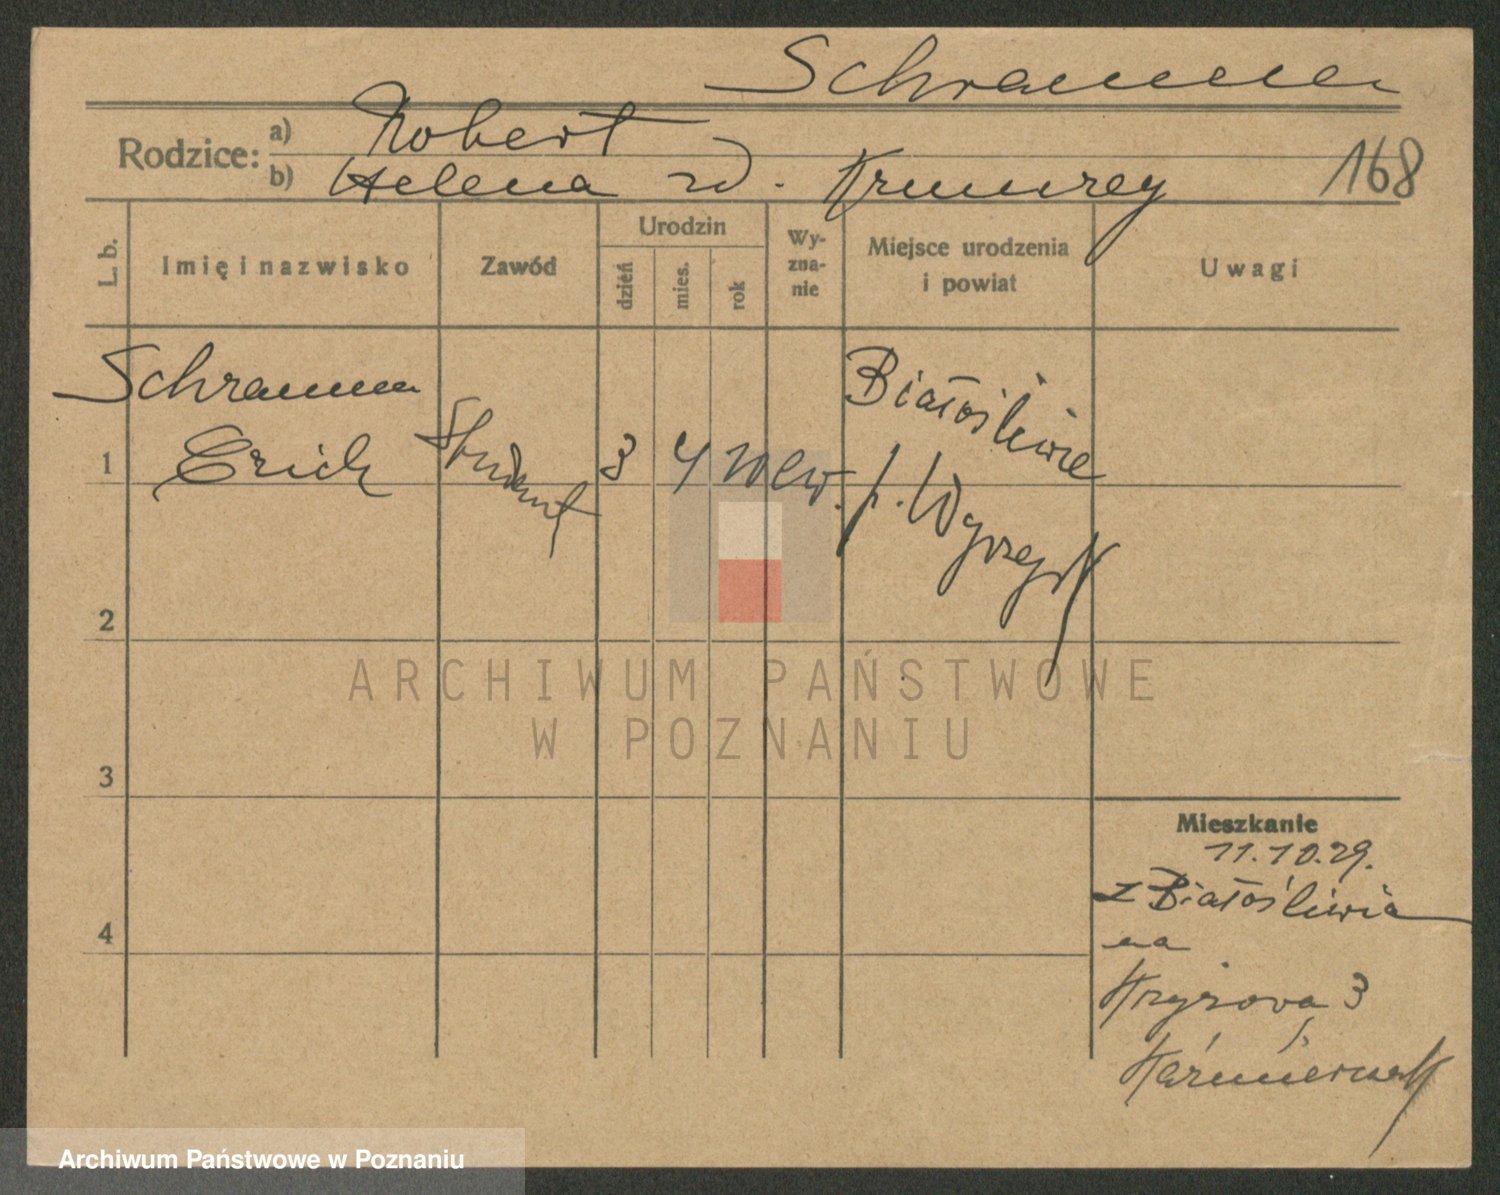 Schramm
Rodzice: a) Robert
b) Helena zd. Krumrey
168
L. b. Imię i nazwisko Zawód Urodzin dzień mies. rok Wy-zna-nie Miejsce urodzenia i powiat Uwagi
Schramm
1 Erich Student 3 4 ew. Białośliwie
p. Wyrzysk
2
3
4
Mieszkanie
11.10.29.
z Białośliwia
na
Kryżova 3
ARCHIWUM PAŃSTWOWE
W POZNANIU
Archiwum Państwowe w Poznaniu